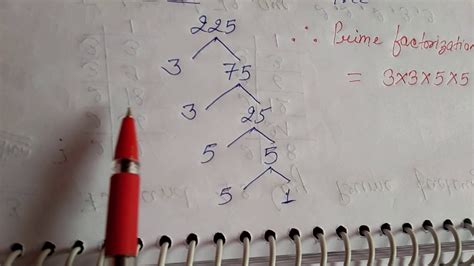 225
3 75
3 25
5 5
5 1
∴ Prime factorization
= 3×3×5×5